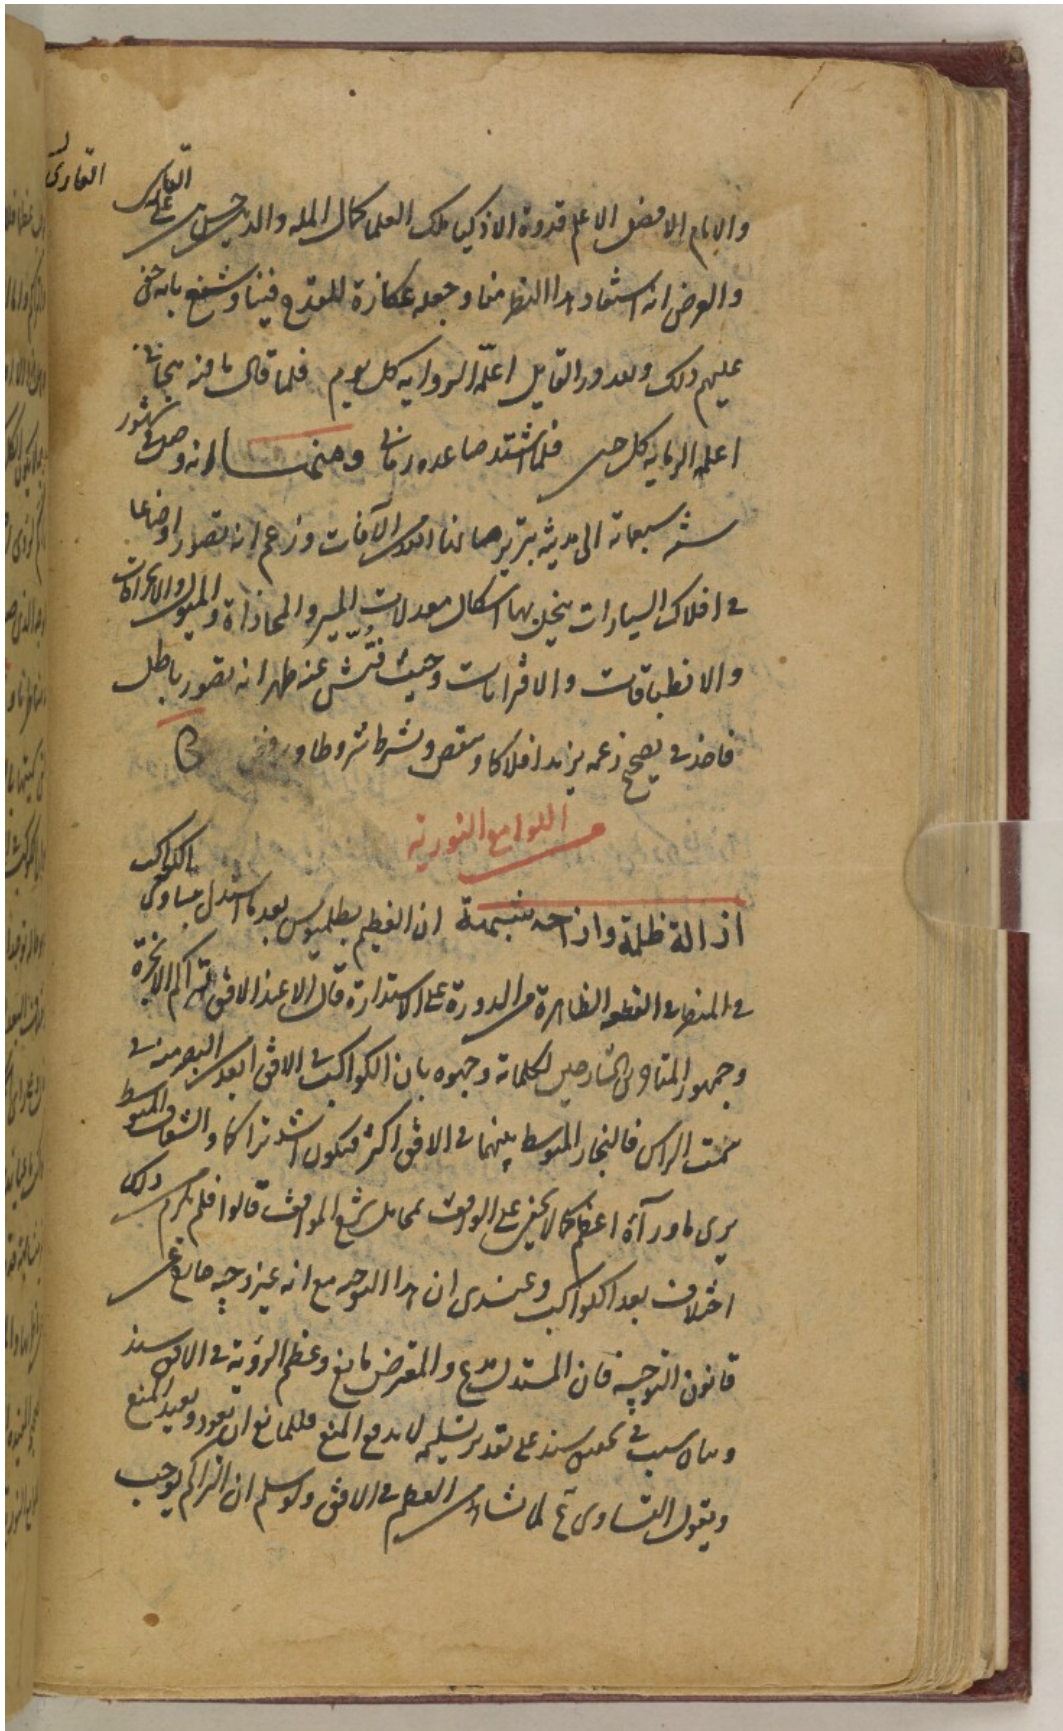 والامام الافضل الاعلم قدوة الاذكيا ملك العلما كمال المله والدين حسن بن على الفارسى
والعرض انه استفاد هذا النظر منا وجعله عكازة للقدح فينا وشنع بانه خفى
عليهم ذلك ولعد در القايل اعلمه الرواية كل يوم فلما قال قافية هجانى
اعلمه الرماية كل حين فلما اشتد ساعده رمانى ومنهما انه وصل فى شهور
سنة سبعماية الى مدينة تبريز صانها الله من الآفات وزعم انه تصور اوضاعا
فى افلاك السيارات ينحل بها اشكال معدلات المسير والمحاذاة والميول والانحرافات
والانطباقات والاقترانات وحيث فتش عنه ظهر انه تصور باطل
فاخذ فى تصحيح زعمه يزيد افلاكا وينقص ويشرط شروطا
اللوامع النورية
ازالة ظلمة وازاحة شبهة ان العظيم بطلميوس بعد ما استدل بتساوى الكواكب
فى المنظر فى القطعة الظاهرة من الدورة على الاستدارة قال الا عند الافق لتراكم الابخرة
وجمهور الشارحين لكلماته وجهوه بان الكواكب فى الافق ابعد من البصر منه فى
سمت الراس فالبخار المتوسط بينهما فى الافق اكثر فيكون اشد تراكما والشفاف المتوسط
يرى ماورآه اعظم كما لا يخفى على الواقف قالوا فلم يلزم من ذلك
اختلاف بعد الكواكب وعندى ان هذا التوجيه مع انه غير وجيه خارج عن
قانون التوجيه فان المستدل مدع والمعترض مانع وعظم الرؤية فى الافق سند
وبيان سبب فى سند على تقدير تسليمه لا يدفع المنع فللمانع ان يعود ويعيد المنع
ويقول التساوى مم لما نشاهد من العظم فى الافق ولو سلم ان التراكم يوجب